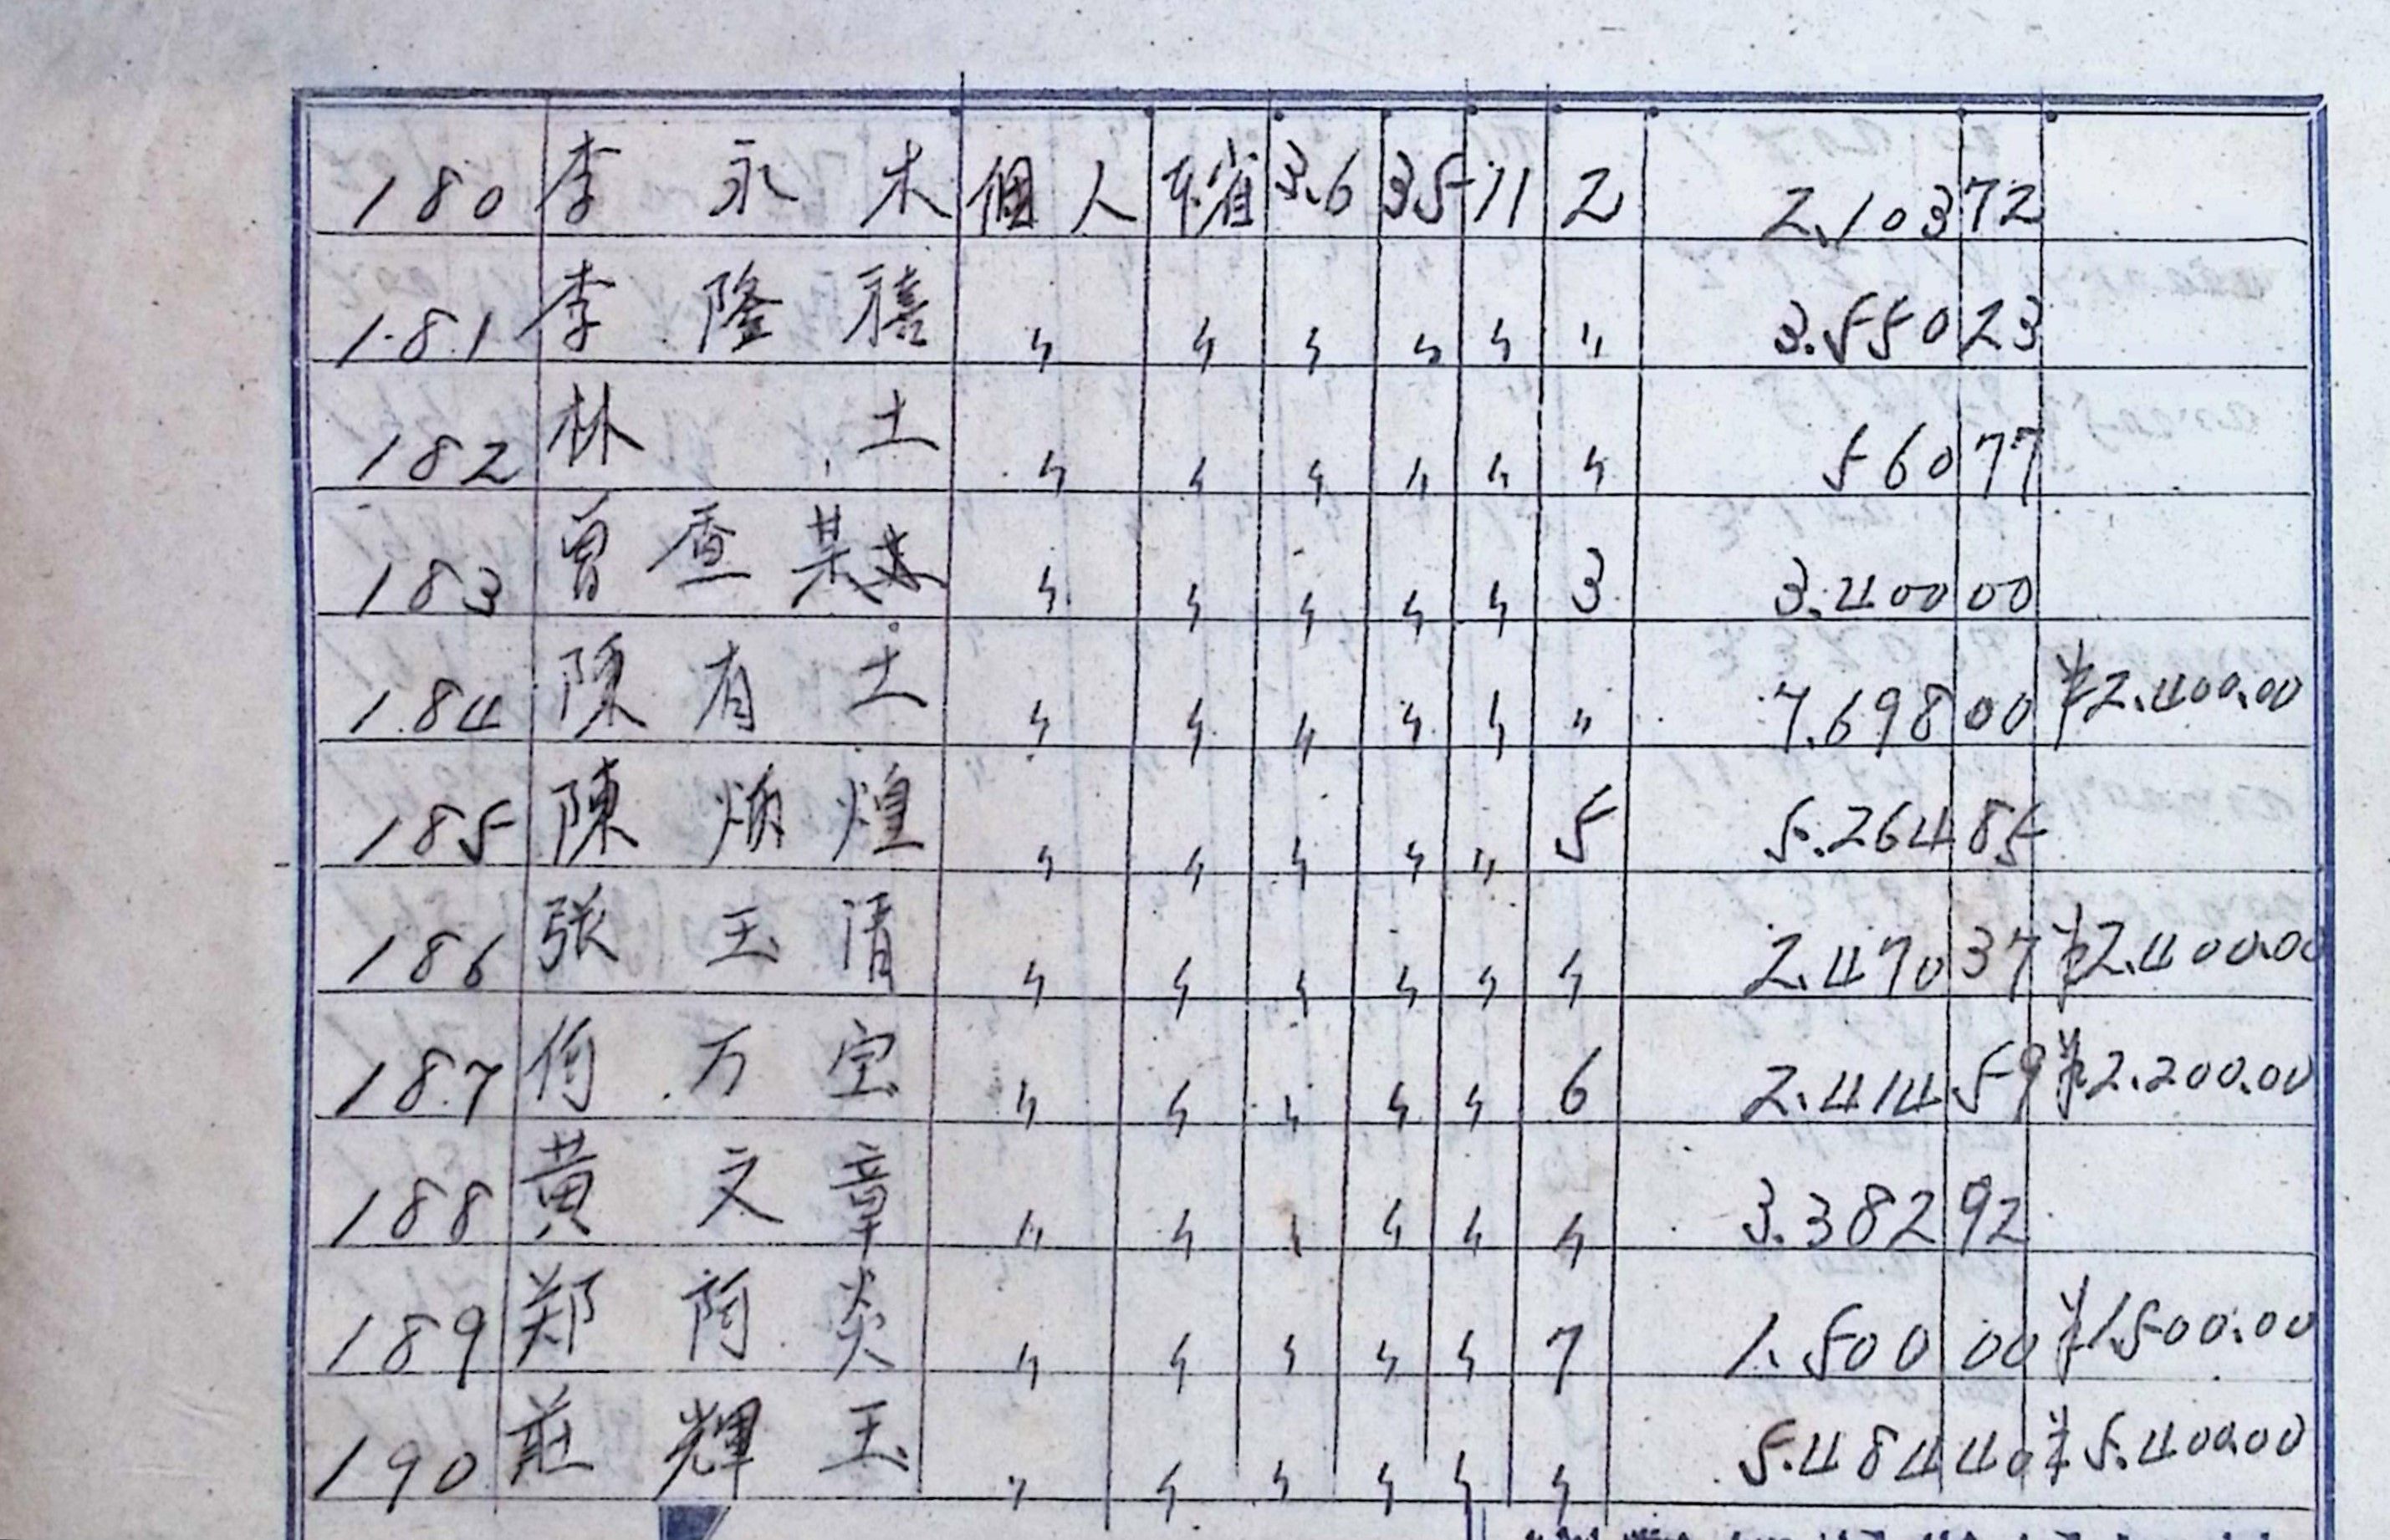 180 李永木 個人 本省 3.6 35 11 2 2.103 72
181 李隆禧 〃 〃 〃 〃 〃 〃 3.550 23
182 林土 〃 〃 〃 〃 〃 〃 560 77
183 曾查某 〃 〃 〃 〃 〃 3 3.400 00
184 陳有土 〃 〃 〃 〃 〃 〃 7.698 00 ¥2.400.00
185 陳炳煌 〃 〃 〃 〃 〃 5 5.264 85
186 张玉清 〃 〃 〃 〃 〃 〃 2.470 37 ¥2.400.00
187 何万宝 〃 〃 〃 〃 〃 6 2.414 59 ¥2.200.00
188 黄文章 〃 〃 〃 〃 〃 〃 3.382 92
189 郑阿炎 〃 〃 〃 〃 〃 7 1.500 00 ¥1.500.00
190 莊輝玉 〃 〃 〃 〃 〃 〃 5.484 40 ¥5.400.00